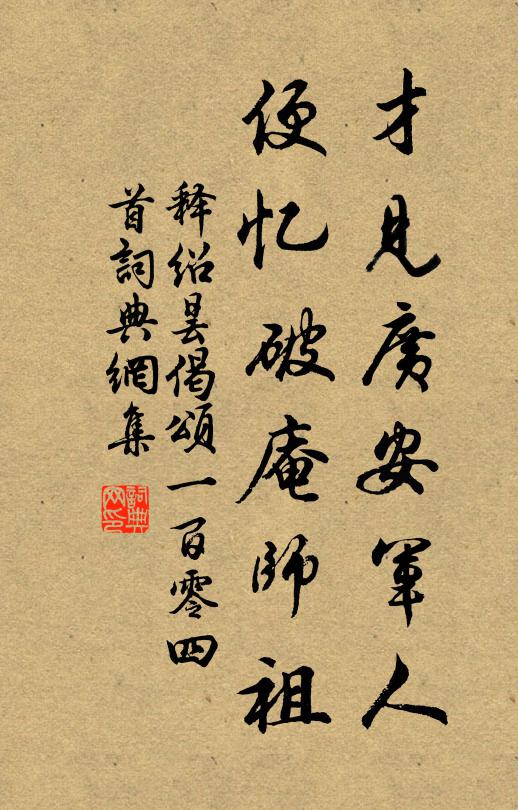 才見廣安軍人
便忆破庵師祖
释绍昙偈頌一百零四
首詞典網集
詞典
网印